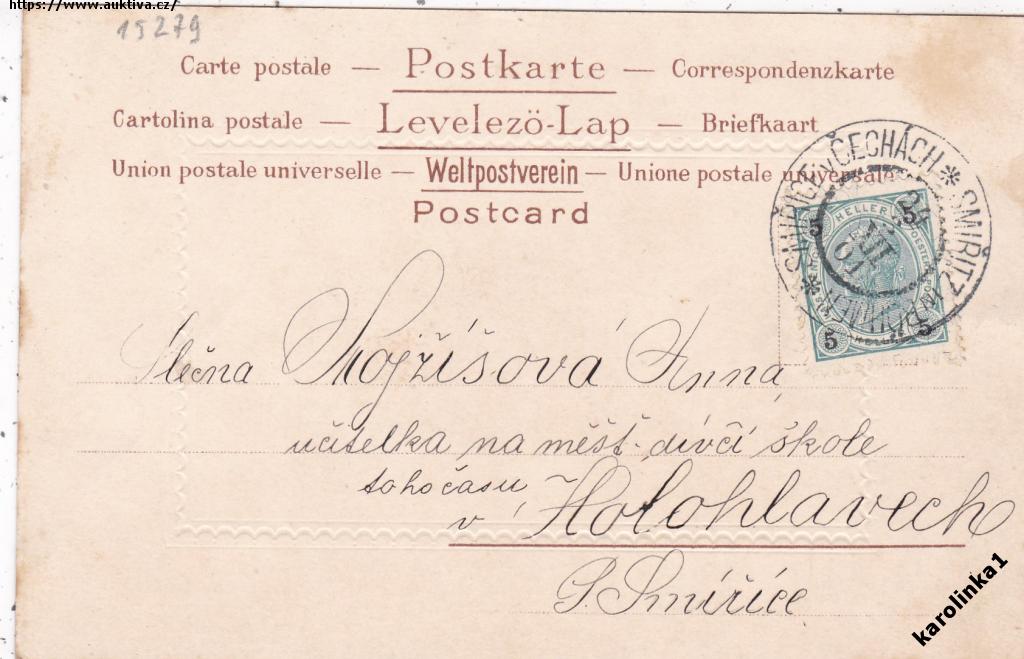 https://www.auktiva.cz/
15279
Carte postale — Postkarte — Correspondenzkarte
Cartolina postale — Levelezö-Lap — Briefkaart
Union postale universelle — Weltpostverein — Unione postale universale
Postcard
SMIŘICE v ČECHÁCH * SMIŘITZ in BÖHMEN *
24 VII 01
5 HELLER 5
5 HELLER 5
Slečna Mojžíšová Anna,
učitelka na měšť. dívčí škole
tohočasu
v Holohlavech
P. Smiřice
karolinka1